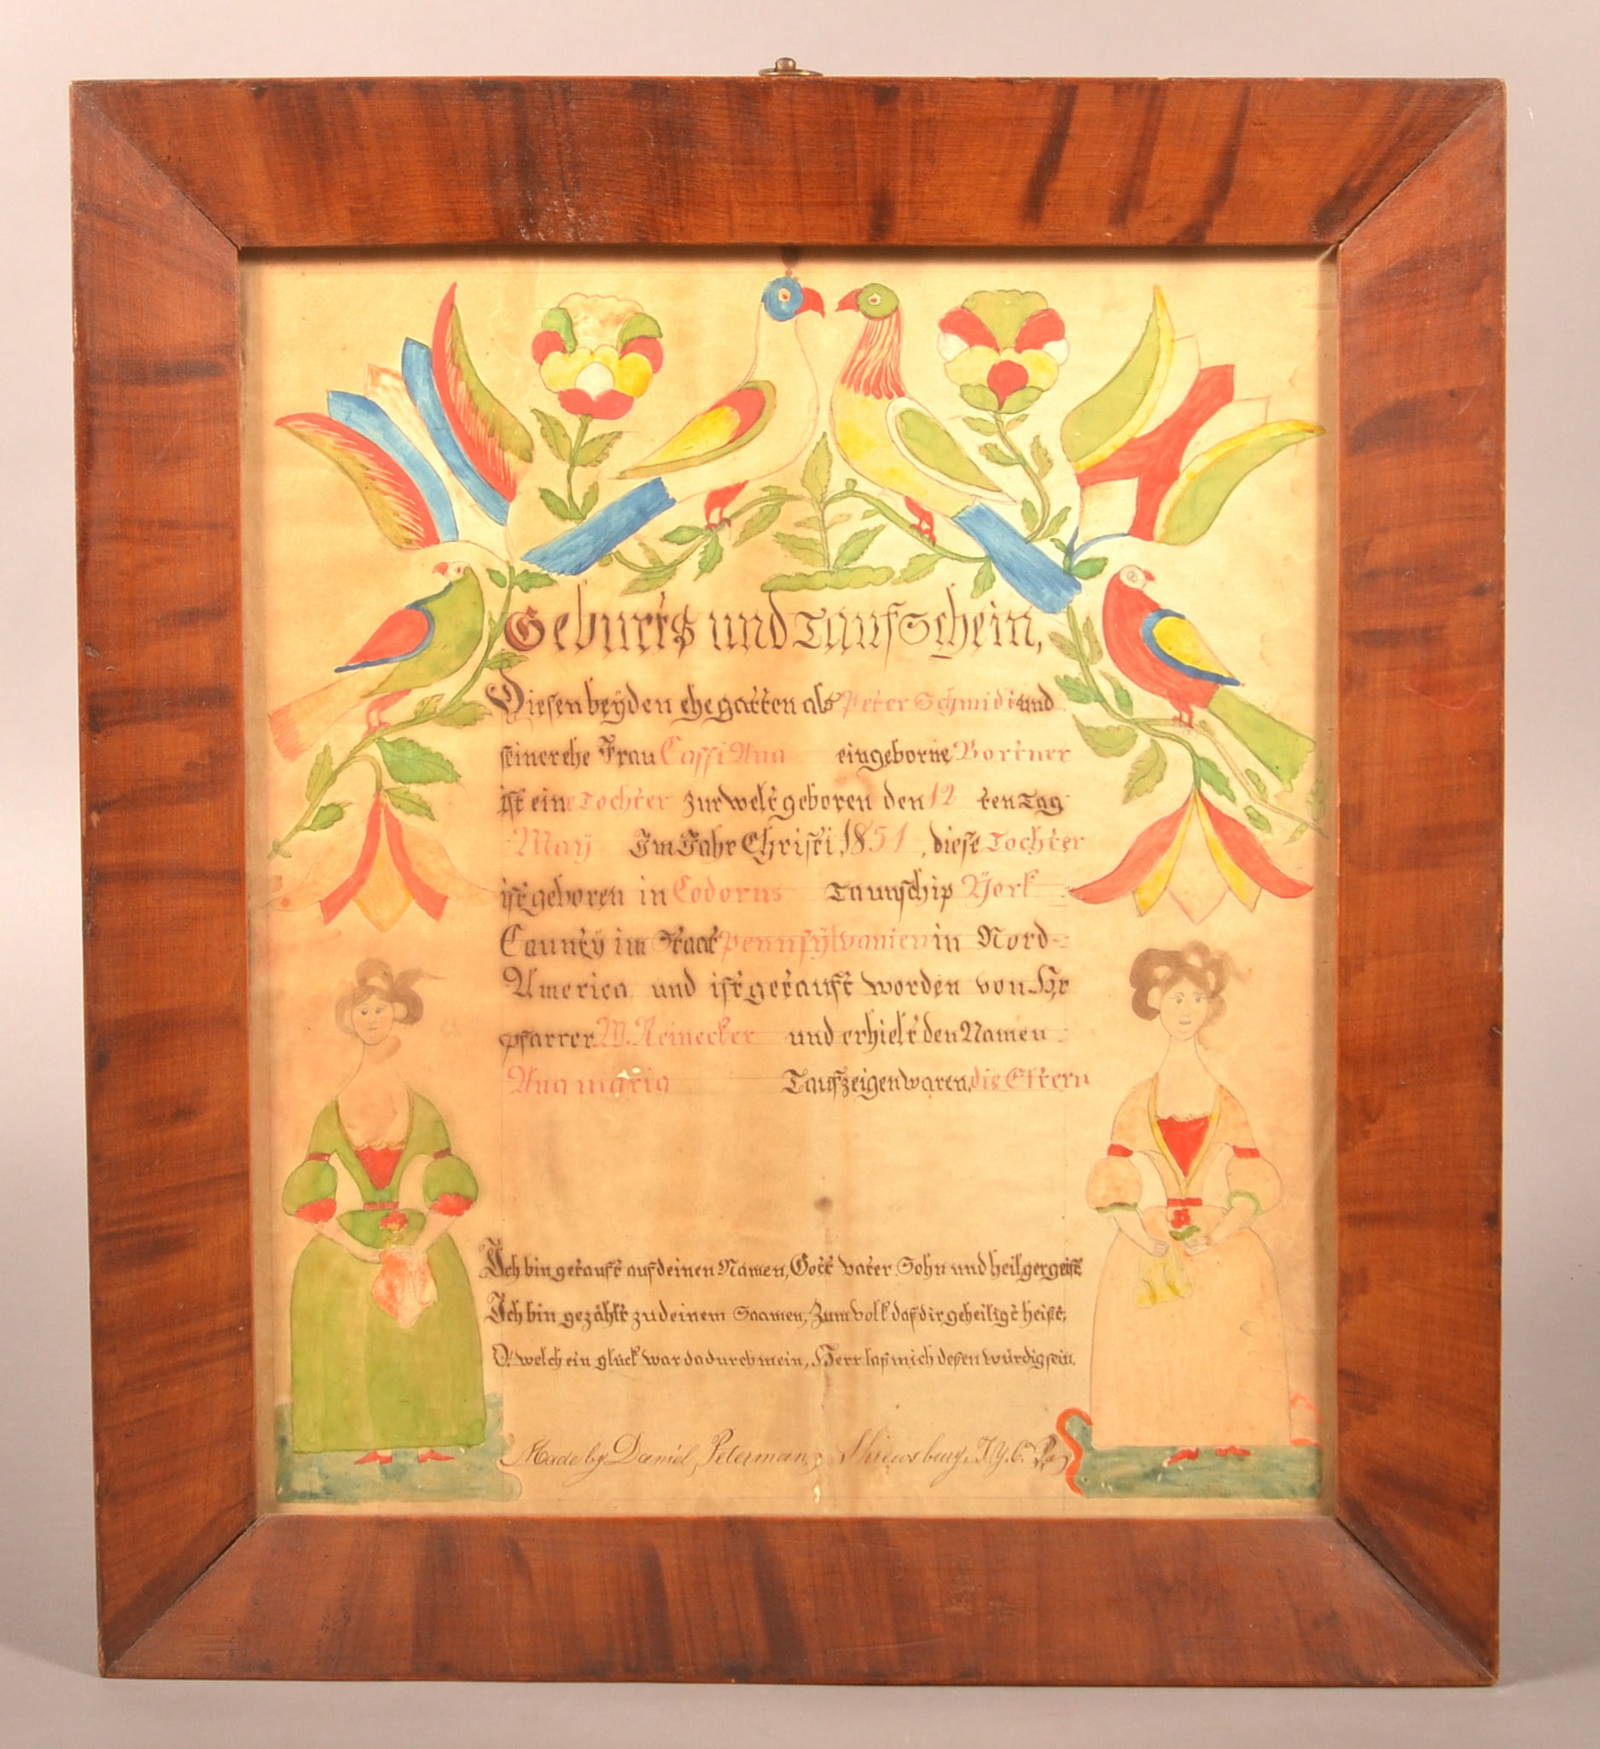 Geburts und TaufSchein,
Diesen beyden ehegatten als Peter Schmidt und
seiner ehe Frau Cassi Ana eingeborne Bortner
ist eine Tochter zur welt geboren den 12 ten Tag
May Im Jahr Christi, 1851, diese Tochter
ist geboren in Codorus Taunschip York
Caunty im Staat Pennsylvanien in Nord
America und ist getauft worden von Hr
pfarrer W. Reinecker und erhielt den Namen
Ana maria Taufzeigen waren, die Eltern
Ich bin getauft auf deinen Namen, Gott vater Sohn und heilger geist
Ich bin gezählt zu deinem Saamen, Zum volk das dir geheiligt heist;
O! welch ein glück war dadurch mein, Herr las mich desen würdig sein.
Made by Daniel Peterman, Shrewsbury, T, y. C. Pa